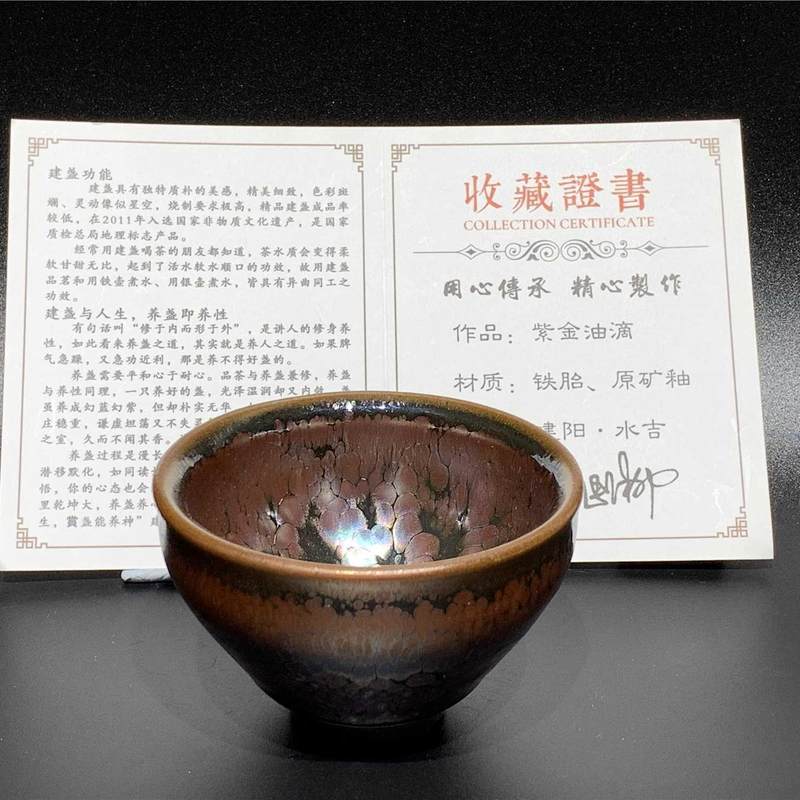 建盏功能
建盏具有独特质朴的美感，精美细致，色彩斑
斓、灵动像似星空，烧制要求极高，精品建盏成品率
较低，在2011年入选国家非物质文化遗产，是国家
质检总局地理标志产品。
经常用建盏喝茶的朋友都知道，茶水质会变得柔
软甘甜无比，起到了活水软水顺口的功效，故用建盏
品茗和用铁壶煮水、用银壶煮水，皆具有异曲同工之
功效。
建盏与人生，养盏即养性
有句话叫“修于内而形于外”，是讲人的修身养
性，如此看来养盏之道，其实就是养人之道。如果脾
气急躁，又急功近利，那是养不得好盏的。
养盏需要平和心于耐心。品茶与养盏兼修，养盏
与养性同理，一只养好的盏，光泽温润却又内敛，
虽养成幻蓝幻紫，但却朴实无华
庄稳重，谦虚坦荡又不失灵
之室，久而不闻其香。
养盏过程是漫长
潜移默化，如同读
悟，你的心态也会
里乾坤大，养盏养
生，賞盏能养神”
收藏證書
COLLECTION CERTIFICATE
用心傳承 精心製作
作品：紫金油滴
材质：铁胎、原矿釉
建阳·水吉